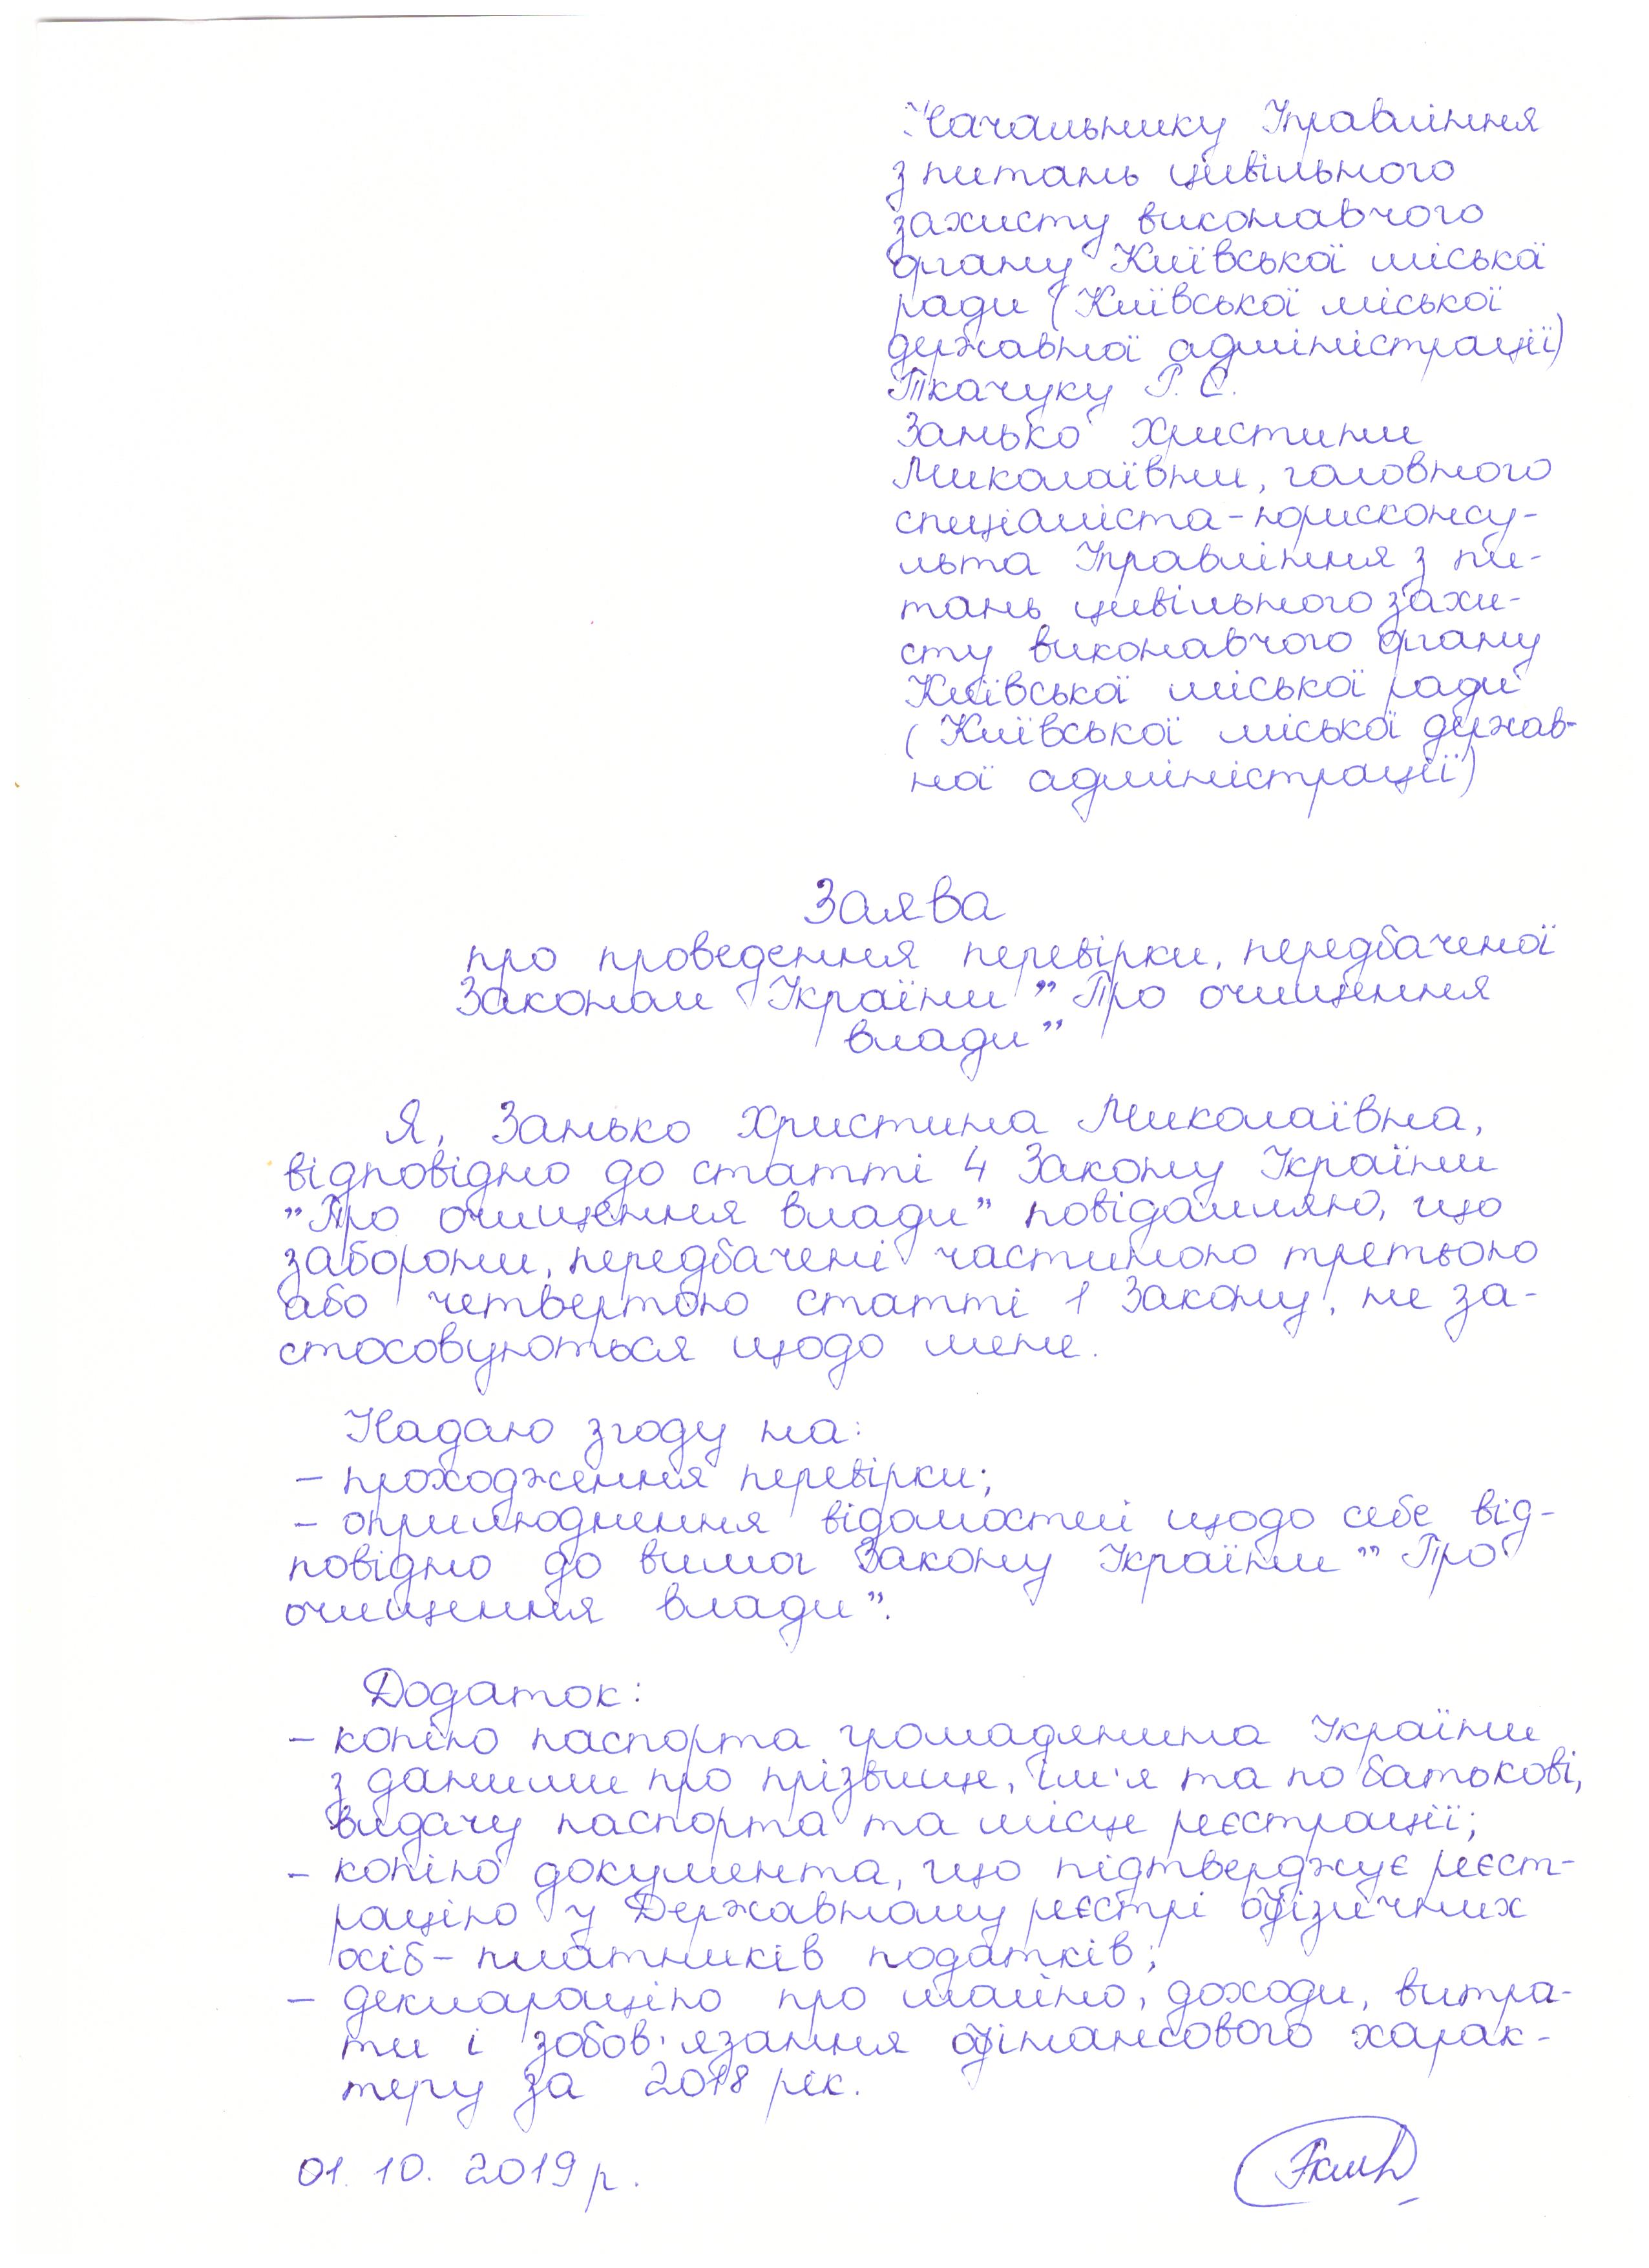 Начальнику Управління
з питань цивільного
захисту виконавчого
органу Київської міської
ради (Київської міської
державної адміністрації)
Ткачуку Р. С.
Занько Христини
Миколаївни, головного
спеціаліста-юрисконсу-
льта Управління з пи-
тань цивільного захи-
сту виконавчого органу
Київської міської ради
(Київської міської держав-
ної адміністрації)
Заява
про проведення перевірки, передбаченої
Законом України "Про очищення
влади"
Я, Занько Христина Миколаївна,
відповідно до статті 4 Закону України
"Про очищення влади" повідомляю, що
заборони, передбачені частиною третьою
або четвертою статті 1 Закону, не за-
стосовуються щодо мене.
Надаю згоду на:
- проходження перевірки;
- оприлюднення відомостей щодо себе від-
повідно до вимог Закону України "Про
очищення влади".
Додаток:
- копію паспорта громадянина України
з даними про прізвище, ім'я та по батькові,
видачу паспорта та місце реєстрації;
- копію документа, що підтверджує реєст-
рацію у Державному реєстрі фізичних
осіб-платників податків;
- декларацію про майно, доходи, витра-
ти і зобов'язання фінансового харак-
теру за 2018 рік.
01.10.2019 р.